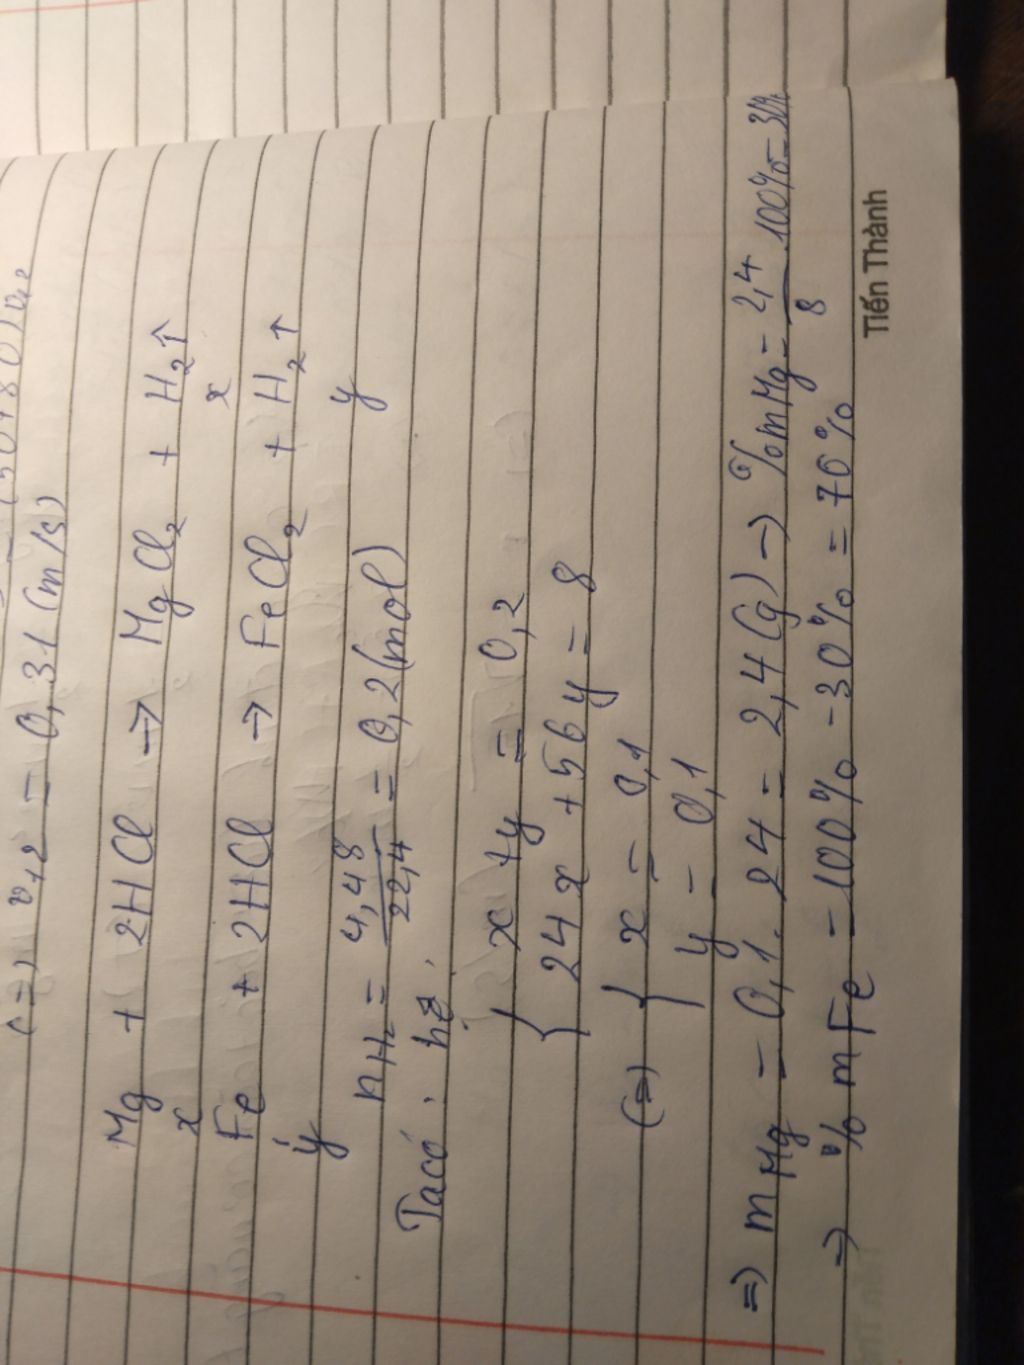 v₁₂ = 0,31 (m/s)
Mg + 2HCl → MgCl₂ + H₂↑
x x
Fe + 2HCl → FeCl₂ + H₂↑
y y
nH₂ = 4,48/22,4 = 0,2 (mol)
Ta có hệ:
{ x + y = 0,2
24x + 56y = 8
(=) { x = 0,1
y = 0,1
=) mMg = 0,1. 24 = 2,4 (g) → %mMg = 2,4/8 .100% = 30%
=) %mFe = 100% - 30% = 70%
Tiến Thành